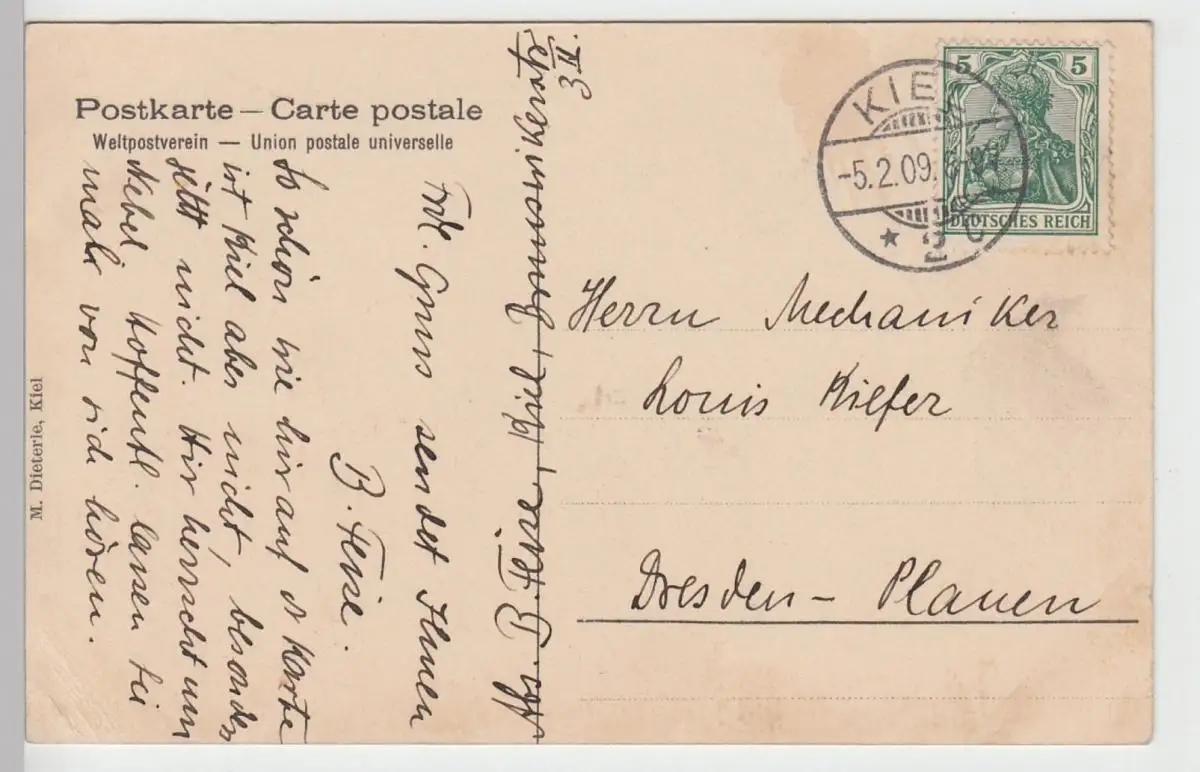 Postkarte — Carte postale
Weltpostverein — Union postale universelle
M. Dieterle, Kiel
KIEL
-5.2.09.
★ 2 c
5 5
DEUTSCHES REICH
Herrn Mechaniker
Louis Kiefer
Dresden - Plauen
B. Feise, Kiel,
III.
Frdl. Gruss sendet Ihnen
B. Feise.
So schön wie hier auf d Karte
ist Kiel aber nicht, besonders
jetzt nicht. Hir herrscht nur
Nebel. Hoffentl. lassen Sie
mahr von sich hören.